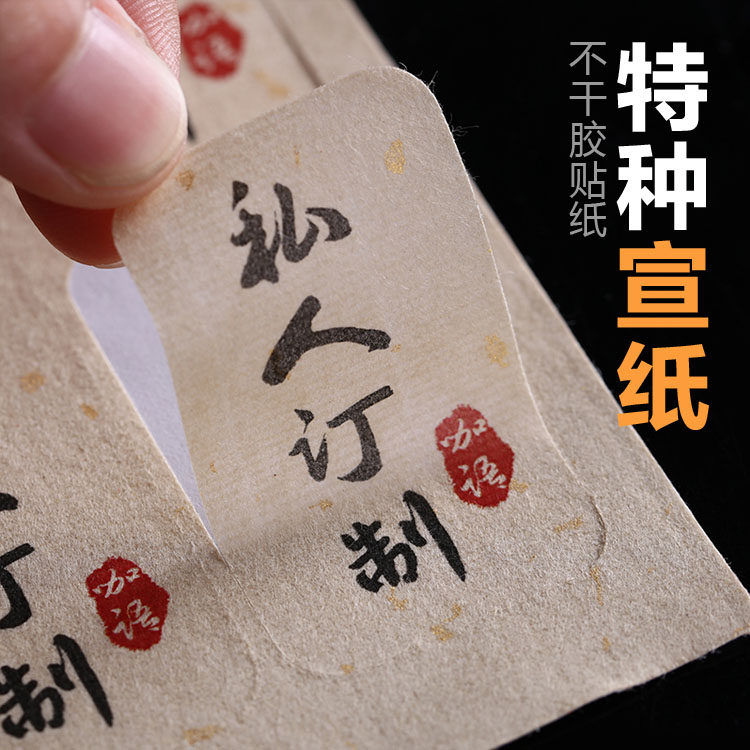 特种宣纸
不干胶贴纸
私人订制
咖语
咖语
制